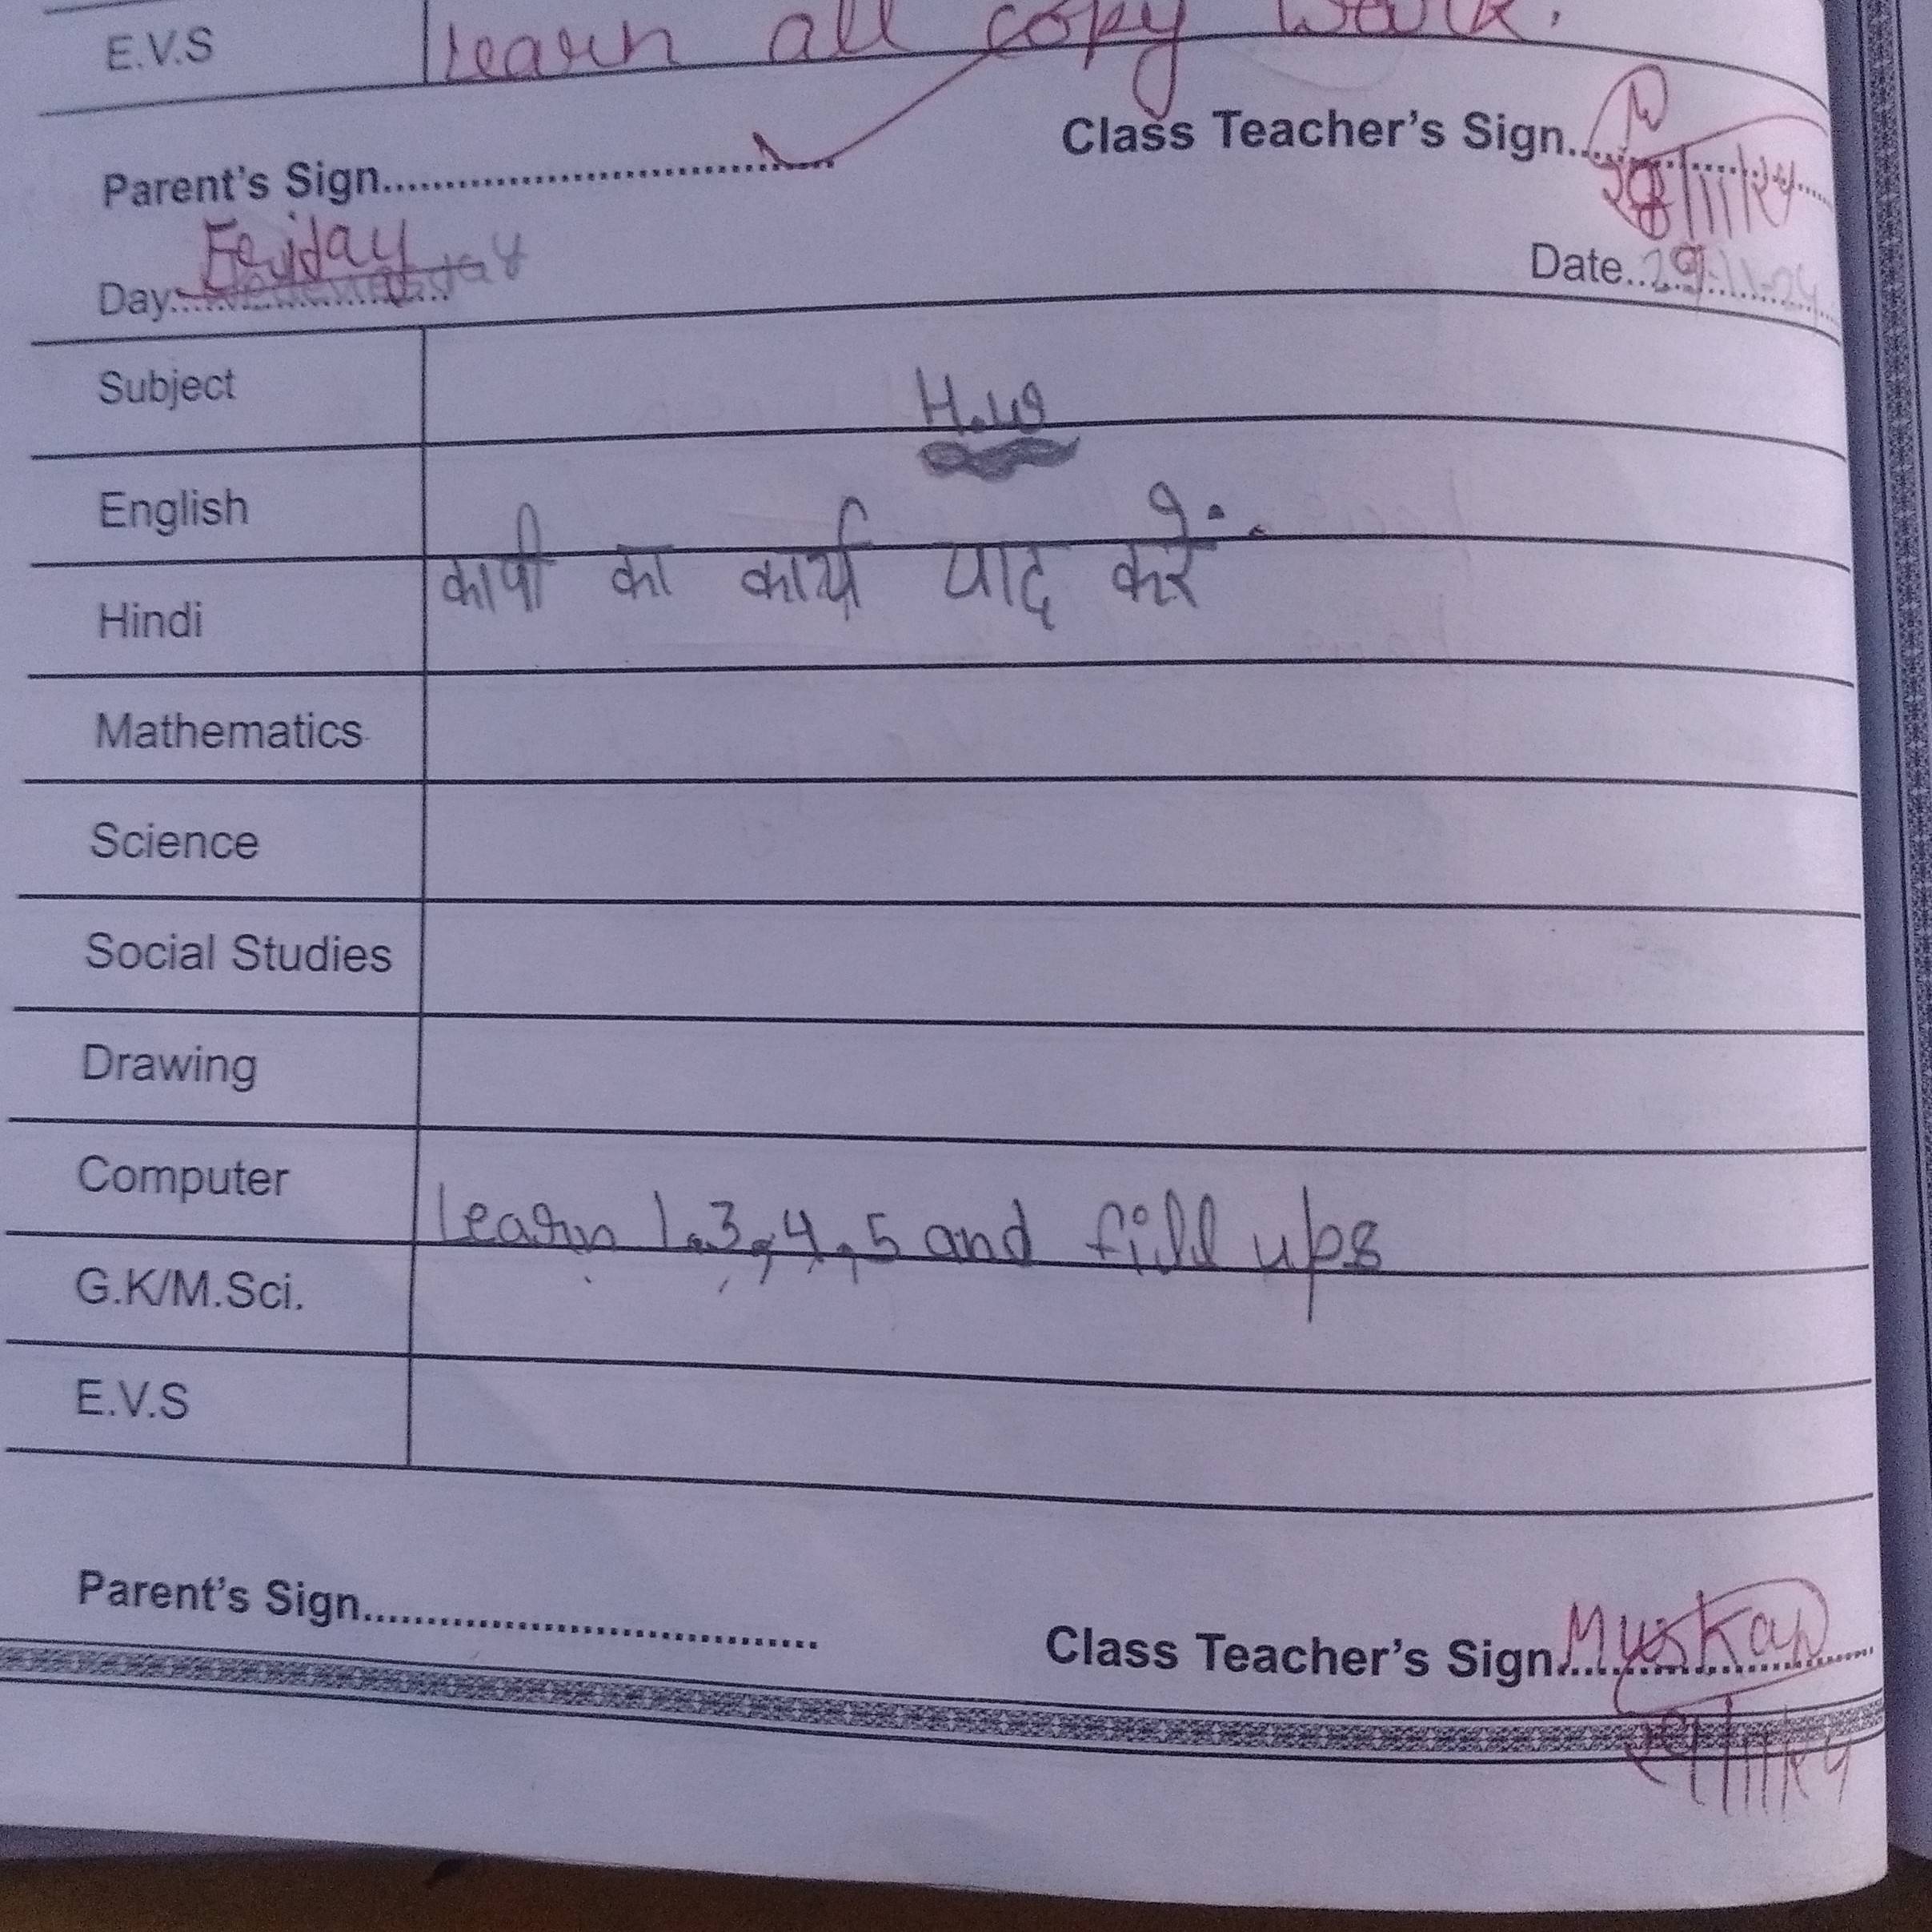 E.V.S Learn all copy work.
Parent's Sign.......... Class Teacher's Sign..........
28/11/24
Day.......... Friday Date.......... 29-11-24
Subject H.W
English
Hindi कापी का कार्य याद करें
Mathematics
Science
Social Studies
Drawing
Computer Learn 1,3,4,5 and fill ups
G.K/M.Sci.
E.V.S
Parent's Sign.......... Class Teacher's Sign.......... Muskan
29/11/24